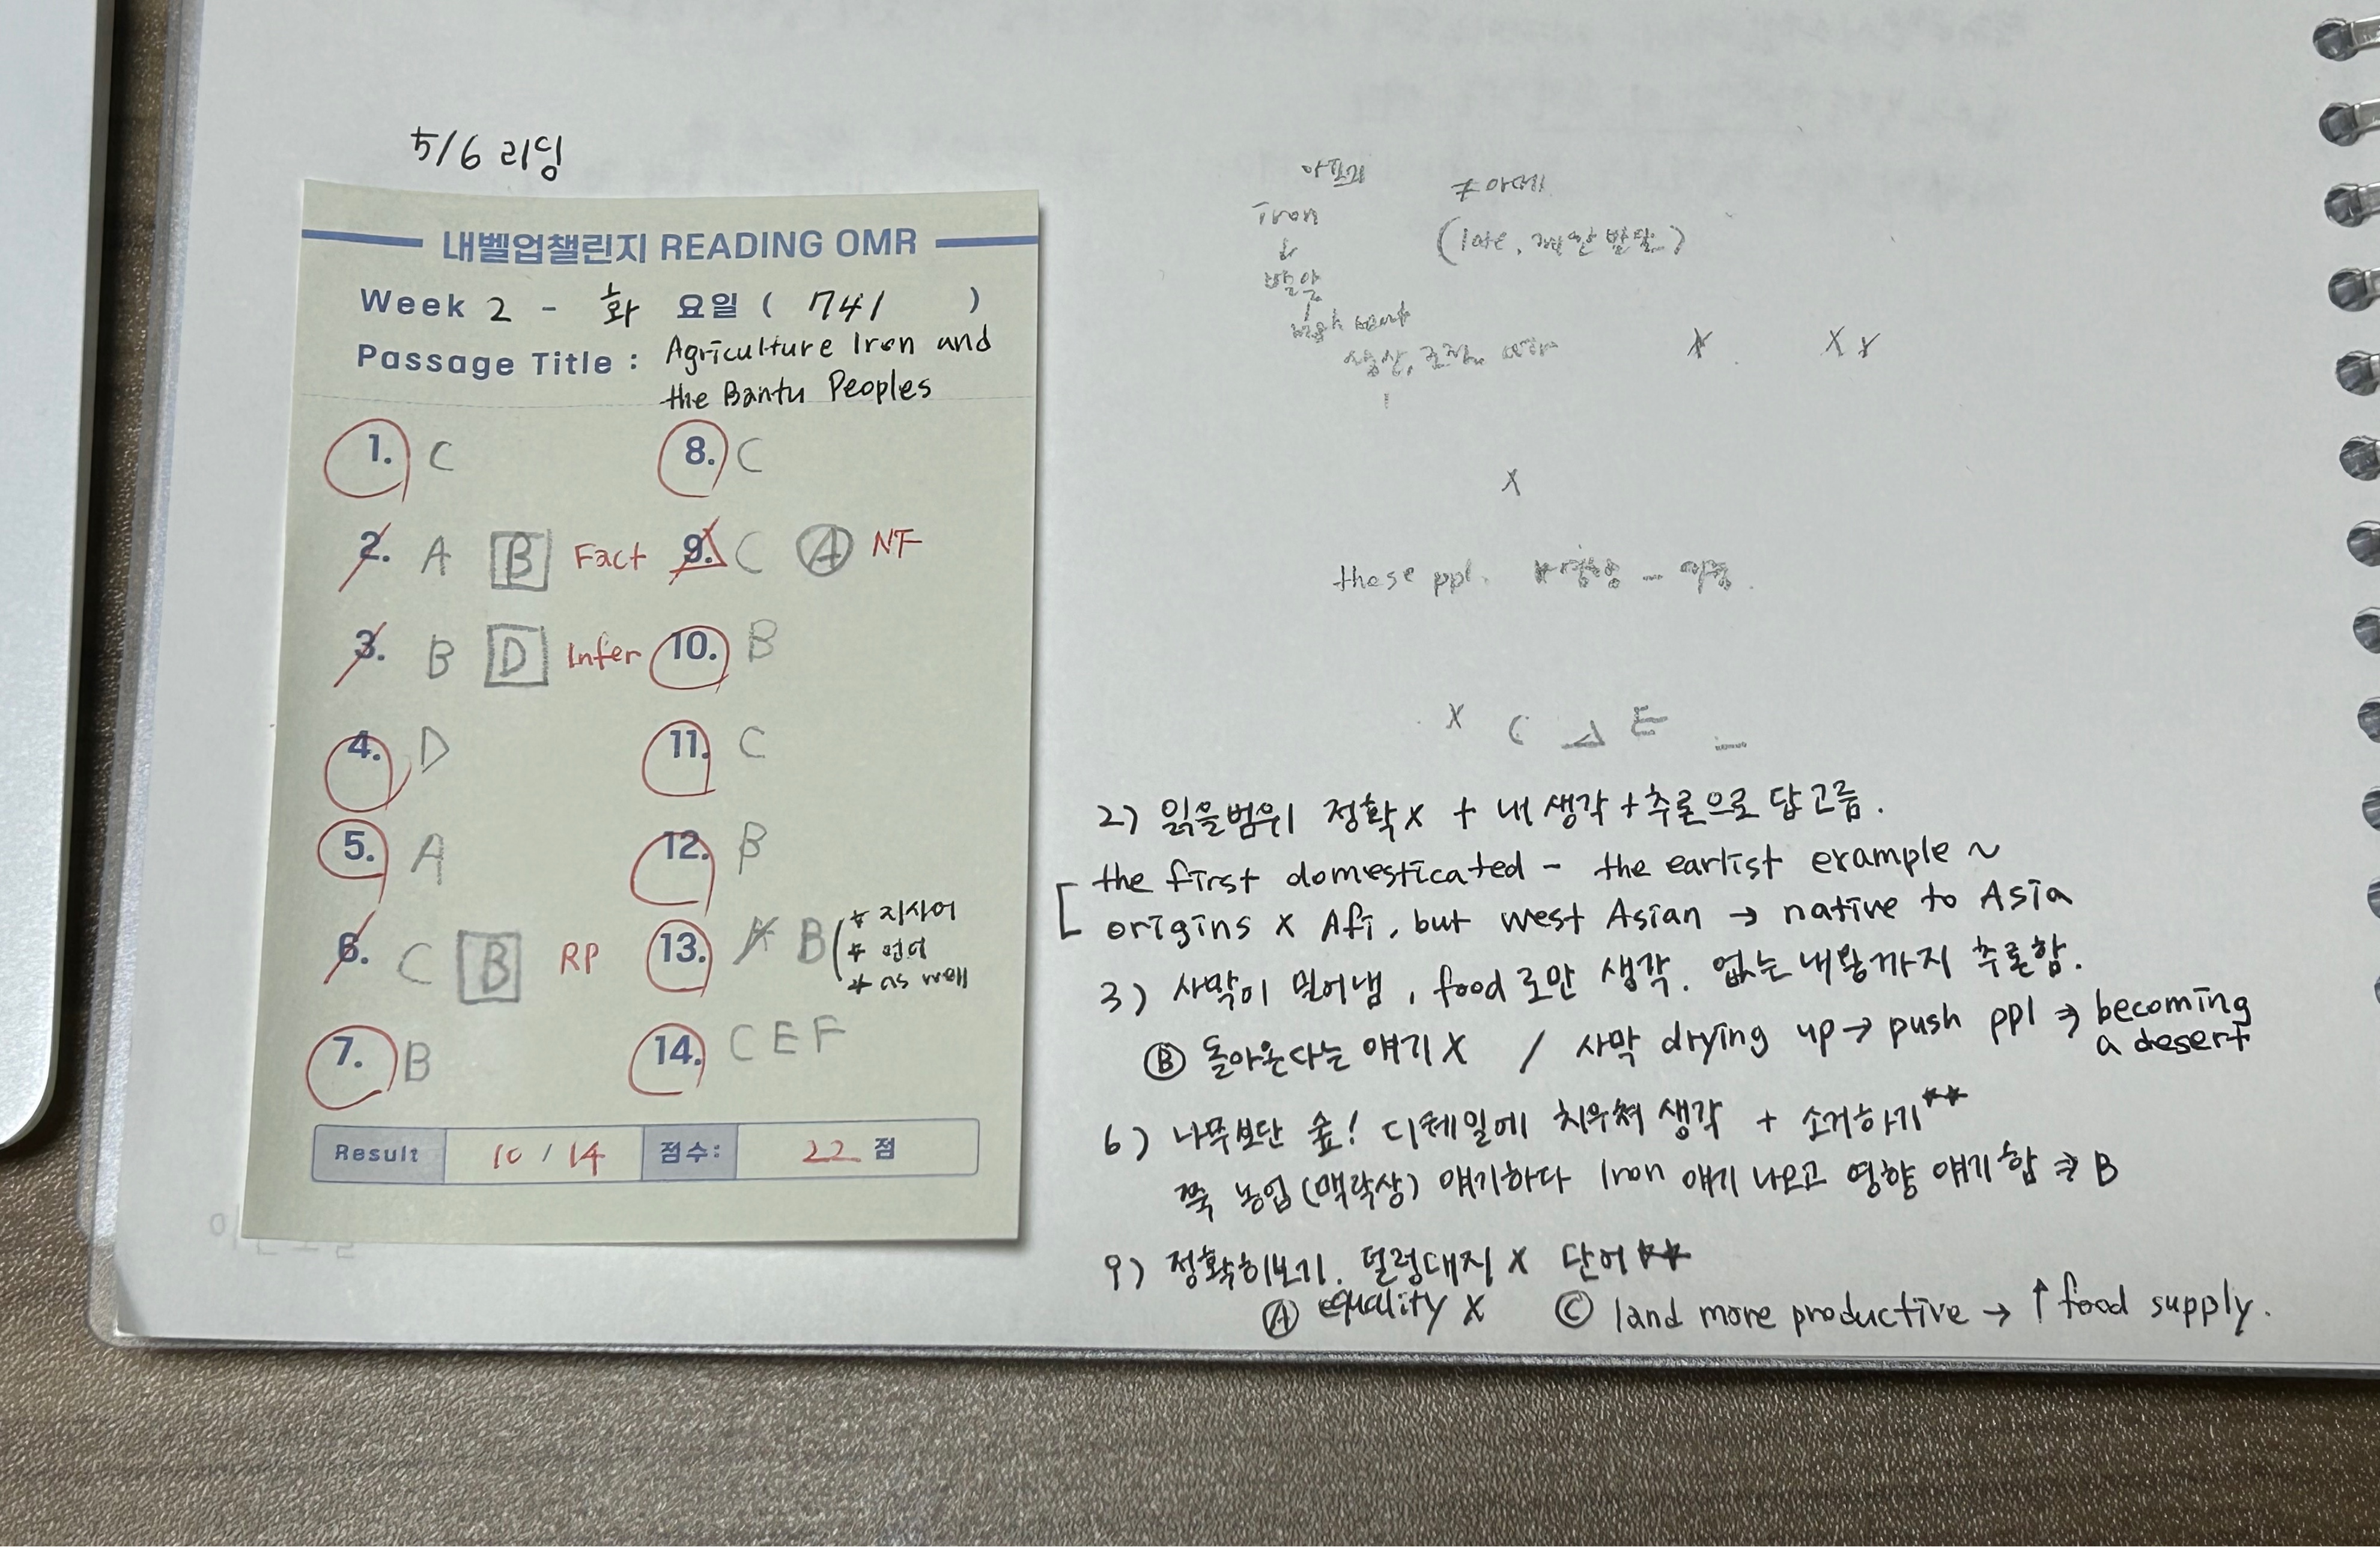 5/6 리딩
내벨업챌린지 READING OMR
Week 2 - 화 요일 ( 741 )
Passage Title : Agriculture Iron and
the Bantu Peoples
1. C
2. A B Fact
3. B D Infer
4. D
5. A
6. C B RP
7. B
8. C
9. C A NF
10. B
11. C
12. B
13. A B ( * 지시어
* 언어
* as well
14. C E F
Result 10 / 14 점수: 22 점
아프리
Iron
↓
≠ 아메
(late, 제한 발달)
X
X
these ppl.
X C E
2) 읽을범위 정확x + 내 생각+추론으로 답고름.
the first domesticated - the earlist example ~
origins x Afi, but west Asian → native to Asia
3) 사막이 밀어냄, food 로만 생각. 없는 내용까지 추론함.
Ⓑ 돌아온다는 얘기 X / 사막 drying up → push ppl ⇒ becoming
a desert
6) 나무보단 숲! 디테일에 치우쳐 생각 + 소거하기**
쭉 농업(맥락상) 얘기하다 Iron 얘기 나오고 영향 얘기함 ⇒ B
9) 정확히보기. 덜렁대지 X 단어**
Ⓐ equality X Ⓒ land more productive → ↑ food supply.